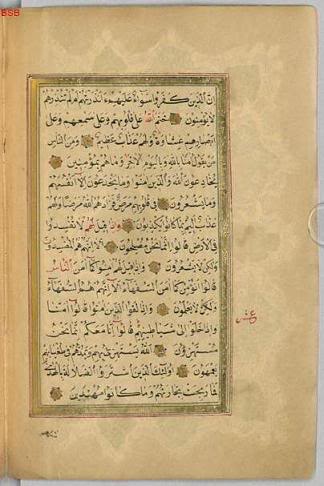 BSB
ان الذين كفروا سواء عليهم ءانذرتهم ام لم تنذرهم
لا يؤمنون ختم الله على قلوبهم وعلى سمعهم وعلى
ابصارهم غشاوة ولهم عذاب عظيم ومن الناس
من يقول امنا بالله وباليوم الاخر وما هم بمؤمنين
يخادعون الله والذين امنوا وما يخدعون الا انفسهم
وما يشعرون في قلوبهم مرض فزادهم الله مرضا ولهم
عذاب اليم بما كانوا يكذبون واذا قيل لهم لا تفسدوا
في الارض قالوا انما نحن مصلحون الا انهم هم المفسدون
ولكن لا يشعرون واذا قيل لهم امنوا كما امن الناس
قالوا انؤمن كما امن السفهاء الا انهم هم السفهاء
ولكن لا يعلمون واذا لقوا الذين امنوا قالوا امنا
واذا خلوا الى شياطينهم قالوا انا معكم انما نحن
مستهزؤن الله يستهزئ بهم ويمدهم في طغيانهم
يعمهون اولئك الذين اشتروا الضلالة بالهدى
فما ربحت تجارتهم وما كانوا مهتدين
عشر